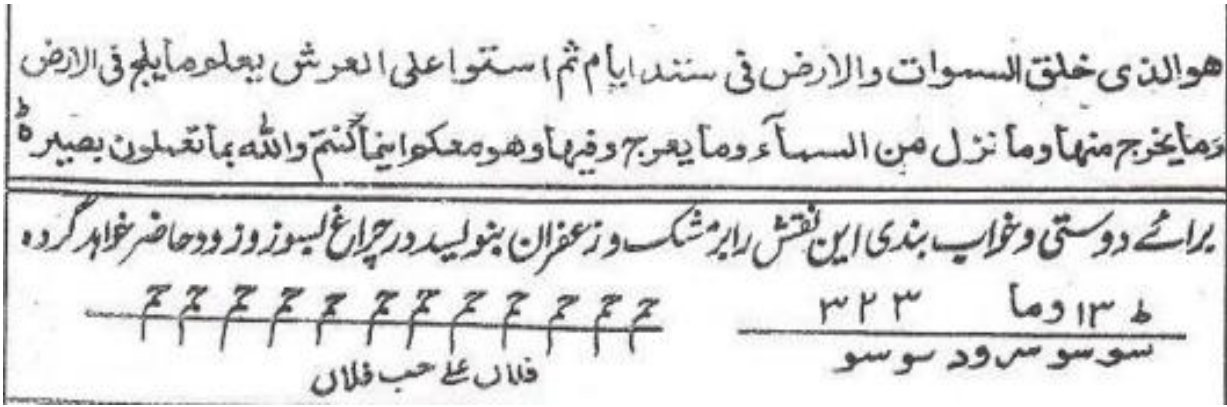 هو الذی خلق السموات والارض فی ستنه ایام ثم استوا علی العرش یعلم ما یلج فی الارض
وما یخرج منها وما نزل من السمآء وما یعرج وفیها وهو معکم اینما کنتم والله بما تعملون بصیر ط
برائے دوستی وخواب بندی این نقش رابر مشک وزعفران بنولیسد در چراغ لبسوز وزود حاضر خواہد گردہ
ط ۱۳ وما ۳ ۲ ۳
سو سو سرود سو سو
فلاں علی حب فلاں